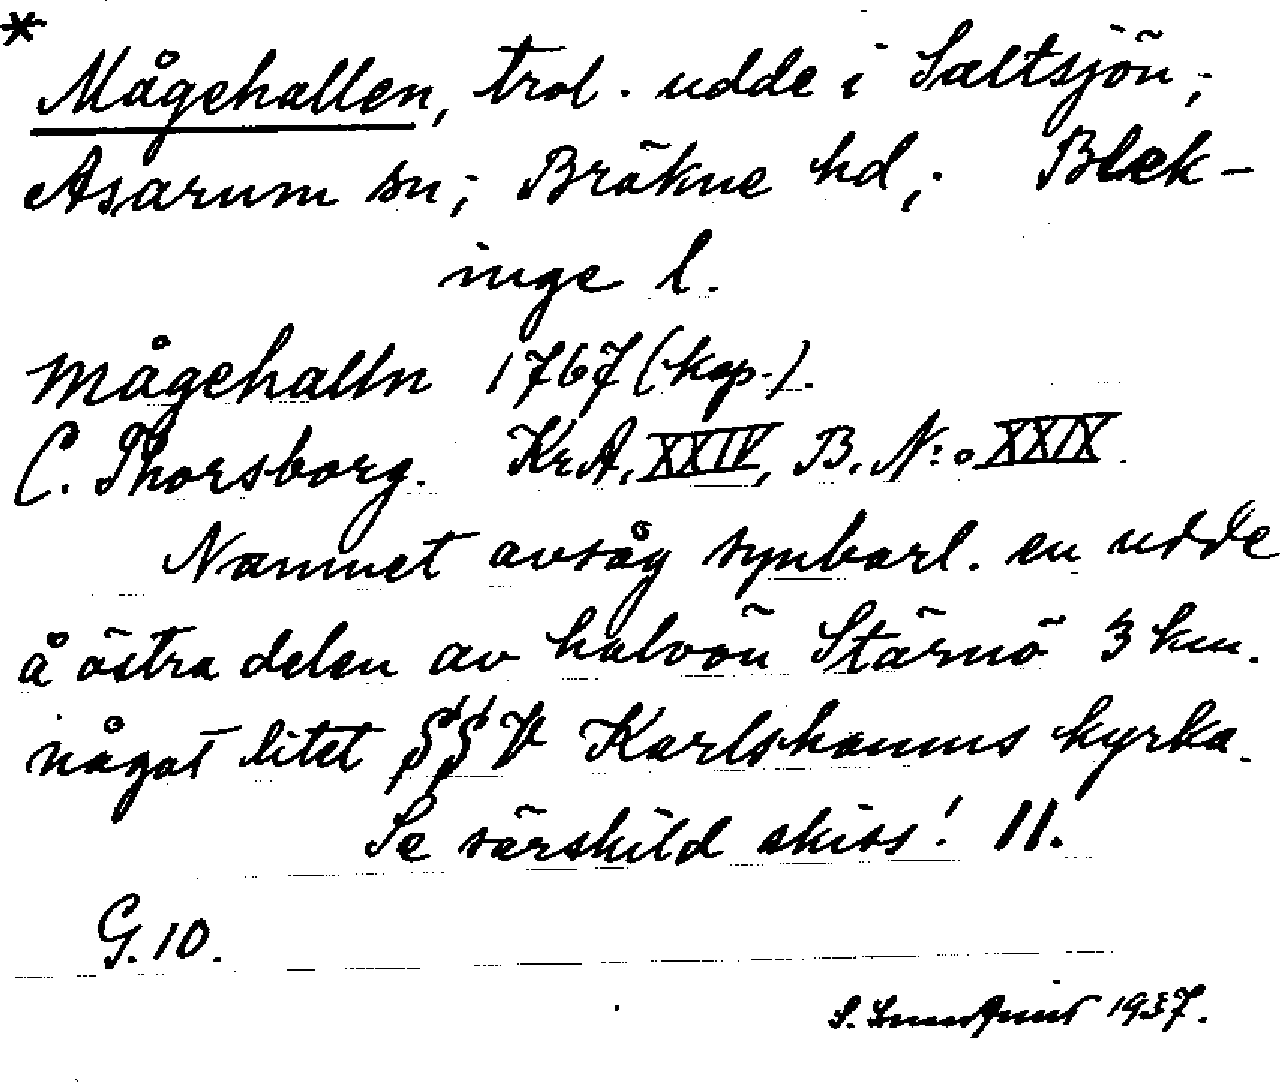 *
Mågehallen, trol. udde i Saltsjön;
Asarum sn; Bräkne hd; Blek-
inge l.
Mågehalln 1767 (kop.).
C. Thorsborg. KrA, XXIV, B. N:o XXIX.
Namnet avsåg synbarl. en udde
å östra delen av halvön Stärnö 3 km.
något litet SSV Karlshamns kyrka.
Se särskild skiss! 11.
G. 10.
1937.